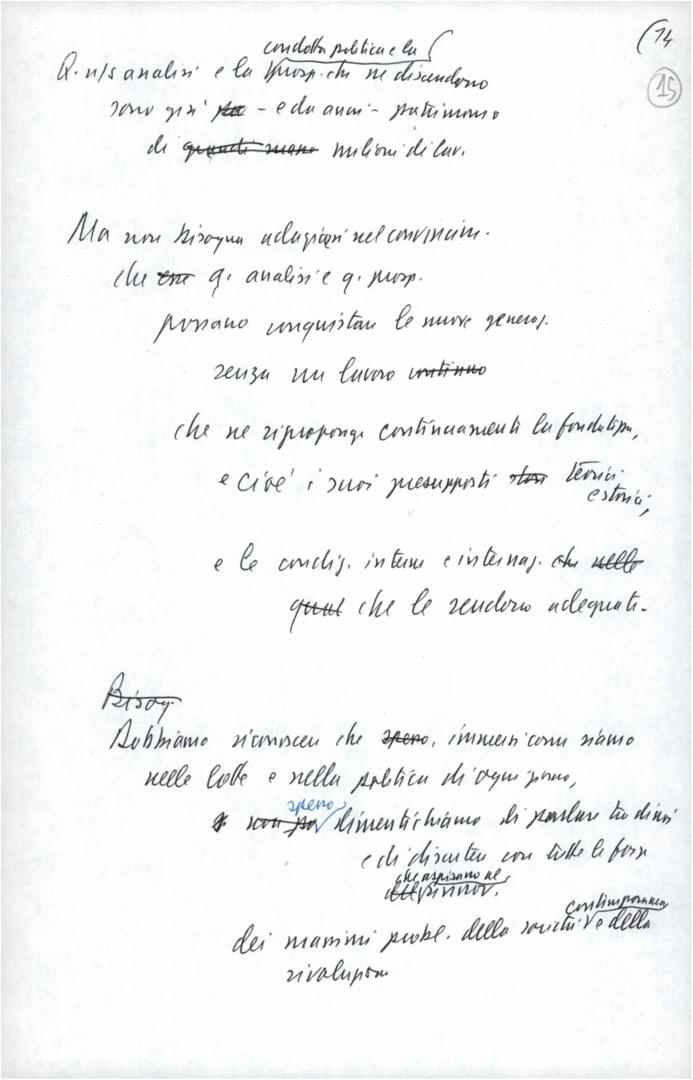 (14
15
condotta politica e la
Q. n/s analisi e la prosp. che ne discendono
sono qui - e da anni - patrimonio
di milioni di lav.
Ma non bisogna adagiarsi nel convincim.
che q. analisi e q. prosp.
possano conquistare le nuove generaz.
senza un lavoro continuo
che ne ripropong continuamente la fondatezza,
e cioè i suoi presupposti stori teorici
e storici,
e le condiz. interne e internaz. che nelle
quali che le rendono adeguate.
Bisog
Dobbiamo riconoscere che spesso, immersi come siamo
nelle lotte e nella politica di ogni giorno,
spesso
dimentichiamo di parlare tra di noi
e di discutere con tutte le forze
che aspirano al
rinnov.
contemporanea
dei massimi probl. della società e della
rivoluzione